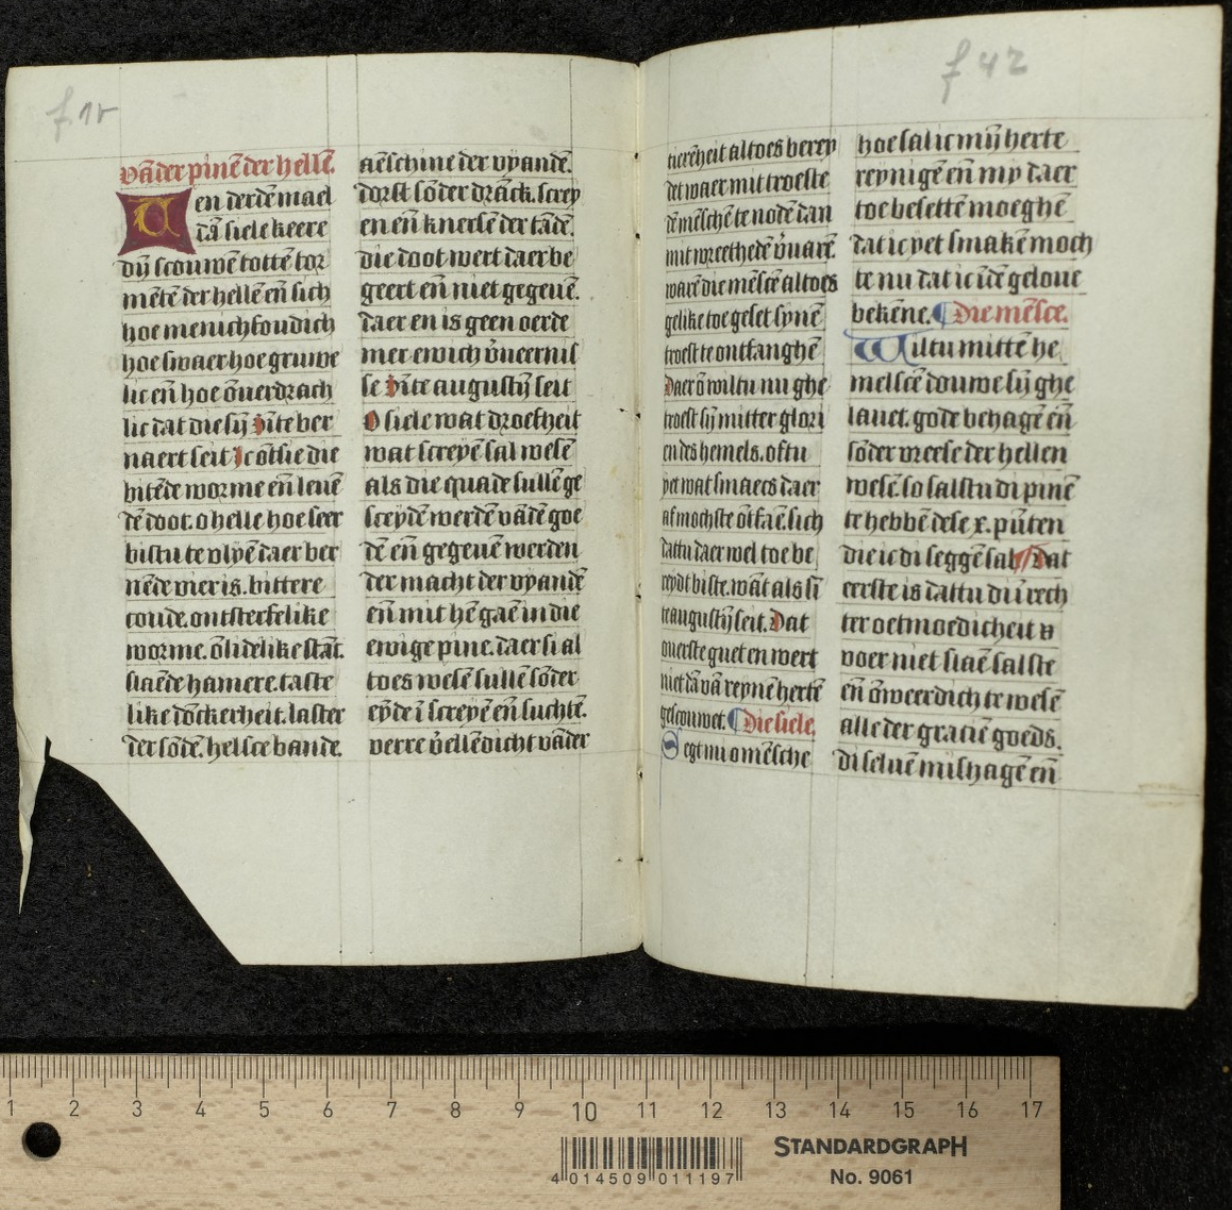 f 1r
vādèr pinē der hellē.
Uen derdē mael
dā siele keere
dij scouwē totten tor
mētē der hellē eñ sich
hoe menichfoudich
hoe swaer hoe gruwe
lic eñ hoe ōuerdrach
lic dat die sij sīte ber
naert seit Ic ōtsie die
bitēde worme eñ leuē
dē doot. o helle hoe seer
bistu te vlyē daer ber
nēde vier is. bittere
coude. onsterfelike
worme. ōlidelike stāc.
slaēde hamere. taste
like dōckerheit. laster
der sōdē. helsce bande.
aēschine der vyandē.
dorst sōder dranck. screy
en eñ knersē der tādē.
die doot wert daer be
geert eñ niet gegeuē.
daer en is geen oerde
mer ewich v̄veernis
se Sīte augustij seit
O siele wat droefheit
wat screyē sal wesē
als die quade sullē ge
sceydē werdē vā dē goe
dē eñ gegeuē werden
der macht der vyandē
eñ mit hē gaē in die
ewige pine. daer si al
toes wesē sullē sōder
eyde ī screyē eñ suchtē.
verre v̄sellē dicht vā der
f 42
tierēheit altoes berey
det waer mit troeste
dē mēschē te nodē dan
mit wreethedē v̄uarē.
warē die mēscē altoes
gelike toe geset synē
troest te ontfanghē
Daer ō wiltu nu ghe
troest sij mitter glori
en des hemels. oftu
yet wat smaecs daer
af mochste ōtfaē. sich
dattu daer wel toe be
reydt biste. wāt als sī
te augustij seit. Dat
ouerste guet en wert
niet dā vā reynē hertē
gescouwet. Die siele.
Segt mi o mēsche
hoe sal ic mij herte
reynigē eñ my daer
toe besettē moeghē
dat ic yet smakē moch
te nu dat ic ī dē geloue
bekēne. Die mēsce.
Wiltu mittē he
melscē douwe sij ghe
lauet. gode behagē eñ
sōder vreese der hellen
wesē so salstu di pinē
te hebbē dese x. pūten
die ic di seggē sal. Dat
eerste is dattu dū rech
ter oetmoedicheit v
voer niet slaē salste
eñ ōweerdich te wesē
alle der graciē goeds.
di seluē mishagē eñ
1 2 3 4 5 6 7 8 9 10 11 12 13 14 15 16 17
STANDARDGRAPH
No. 9061
4 014509 011197